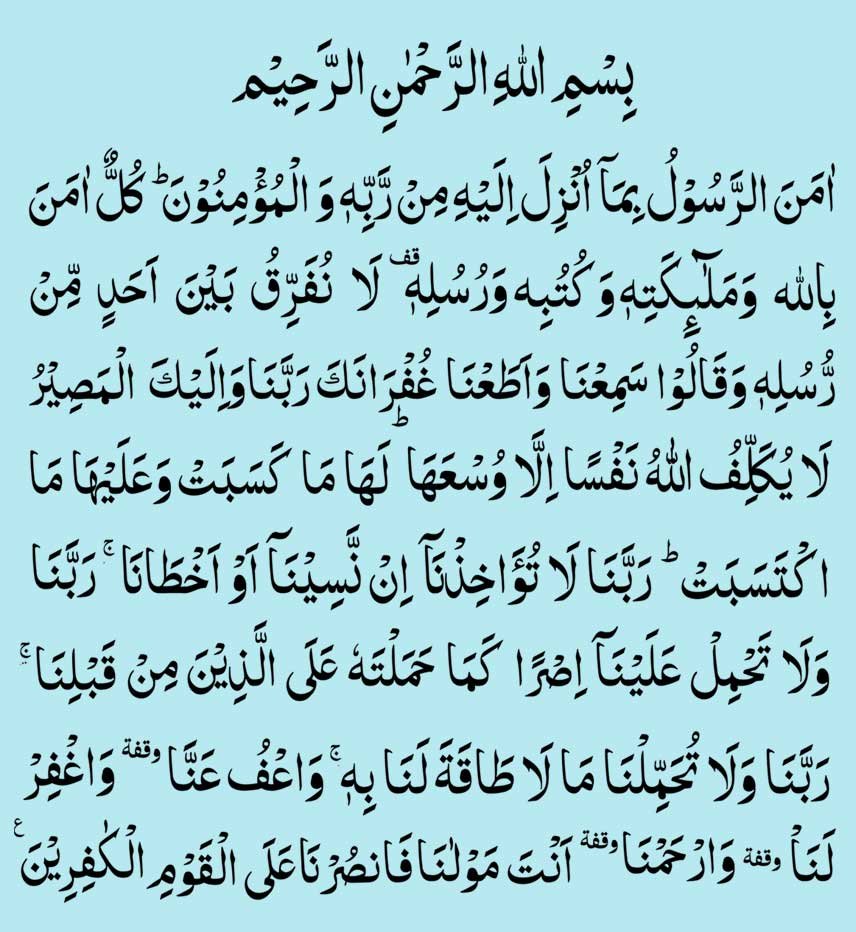 بِسْمِ اللهِ الرَّحْمٰنِ الرَّحِيْمِ
اٰمَنَ الرَّسُوْلُ بِمَآ اُنْزِلَ اِلَيْهِ مِنْ رَّبِّهٖ وَ الْمُؤْمِنُوْنَ ؕ كُلٌّ اٰمَنَ
بِالله وَمَلٰٓئِكَتِهٖ وَ كُتُبِه وَرُسُلِهٖ قف لَا نُفَرِّقُ بَيْنَ اَحَدٍ مِّنْ
رُّسُلِهٖ وَقَالُوْا سَمِعْنَا وَاَطَعْنَا غُفْرَانَكَ رَبَّنَا وَاِلَيْكَ الْمَصِيْرُ
لَا يُكَلِّفُ اللهُ نَفْسًا اِلَّا وُسْعَهَا ؕ لَهَا مَا كَسَبَتْ وَعَلَيْهَا مَا
اكْتَسَبَتْ ؕ رَبَّنَا لَا تُؤَاخِذْنَآ اِنْ نَّسِيْنَآ اَوْ اَخْطَانَا ۚ رَبَّنَا
وَلَا تَحْمِلْ عَلَيْنَآ اِصْرًا كَمَا حَمَلْتَهٗ عَلَى الَّذِيْنَ مِنْ قَبْلِنَا ۚ
رَبَّنَا وَلَا تُحَمِّلْنَا مَا لَا طَاقَةَ لَنَا بِهٖ ۚ وَاعْفُ عَنَّا وقفة وَاغْفِرْ
لَنَاْ وقفة وَارْحَمْنَا وقفة اَنْتَ مَوْلٰىنَا فَانصُرْنَا عَلَى الْقَوْمِ الْكٰفِرِيْنَ ع